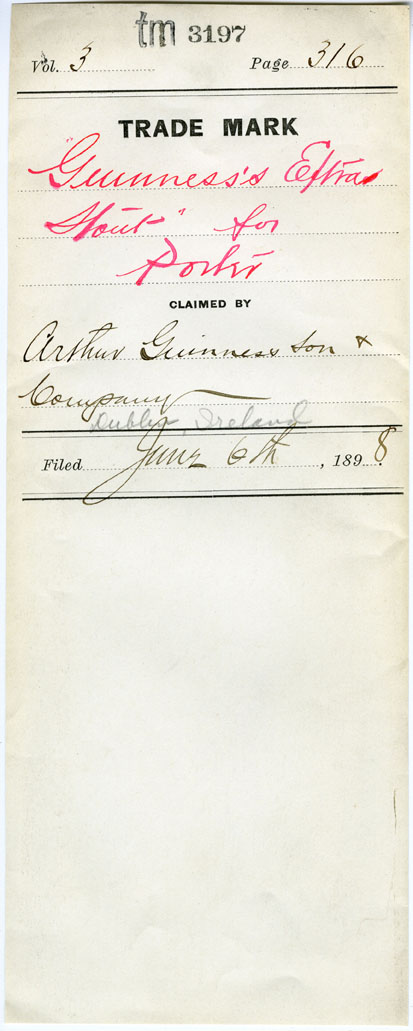 tm 3197
Vol. 3 Page 316
TRADE MARK
"Guinness's Extra
Stout" for
Porter
CLAIMED BY
Arthur Guinness Son &
Company
Dublin, Ireland
Filed June 6th, 1898.